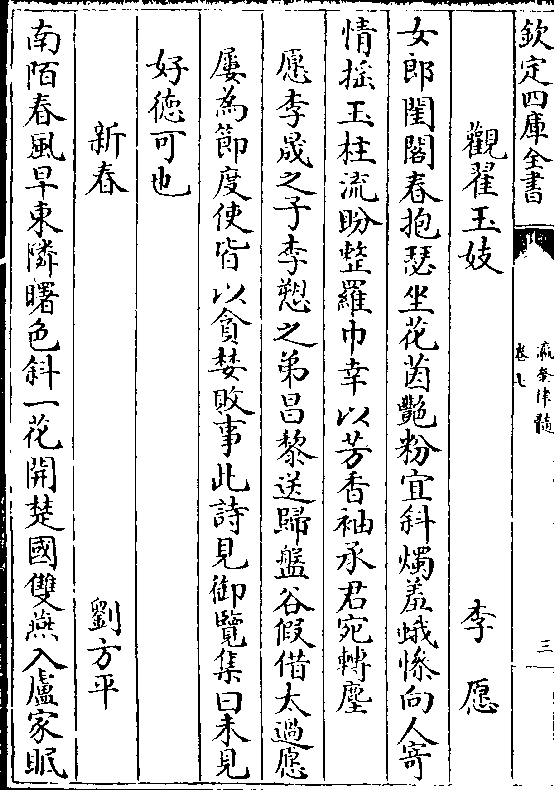 欽定四庫全書
瀛奎律髓
卷七
三
觀翟玉妓 李愿
女郎閨閣春抱瑟坐花茵艷粉宜斜燭羞蛾慘向人寄
情揺玉柱流盼整羅巾幸以芳香袖承君宛轉塵
愿李晟之子李愬之弟昌黎送歸盤谷假借太過愿
屢為節度使皆以貪婪敗事此詩見御覽集曰未見
好徳可也
新春 劉方平
南陌春風早東隣曙色斜一花開楚國雙燕入盧家眠